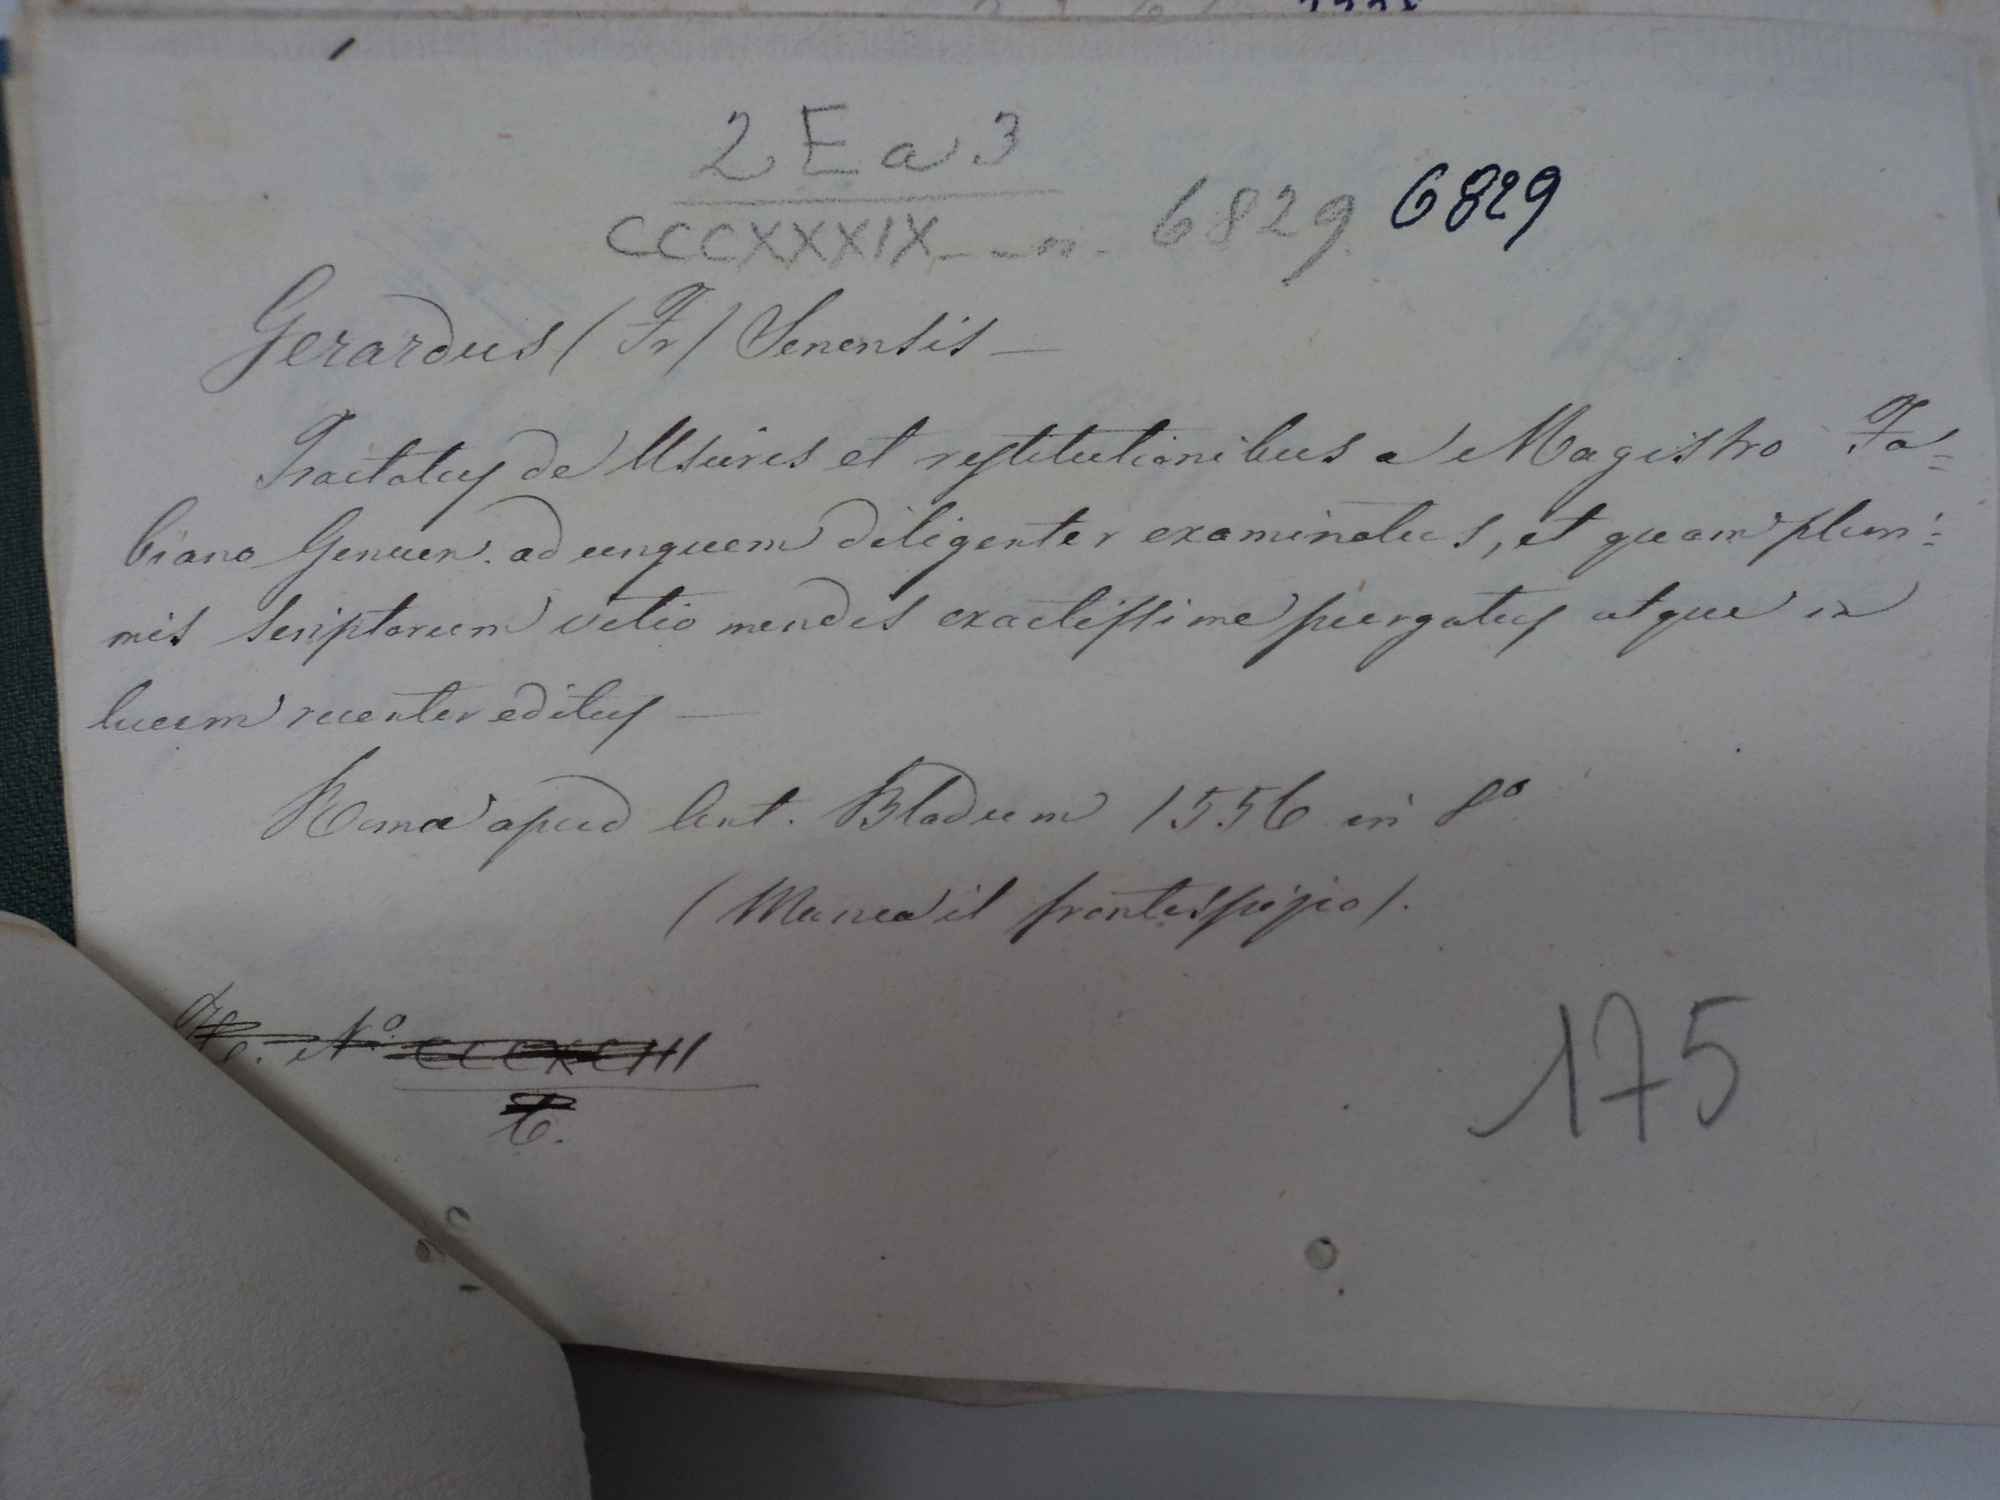 2 E a 3
CCCXXXIX - - n. 6829 6829
Gerardus (Fr) Senensis —
Tractatus de Usuris et restitutionibus a Magistro Fa=
biano Genuen. ad unguem diligenter examinatus, et quam pluri=
mis scriptorum vitio mendis exactissime purgatus atque in
lucem recenter editus —
Romae apud Ant. Bladum 1556 in 8º
(Manca il frontespizio).
Nº CCCXCIII
175